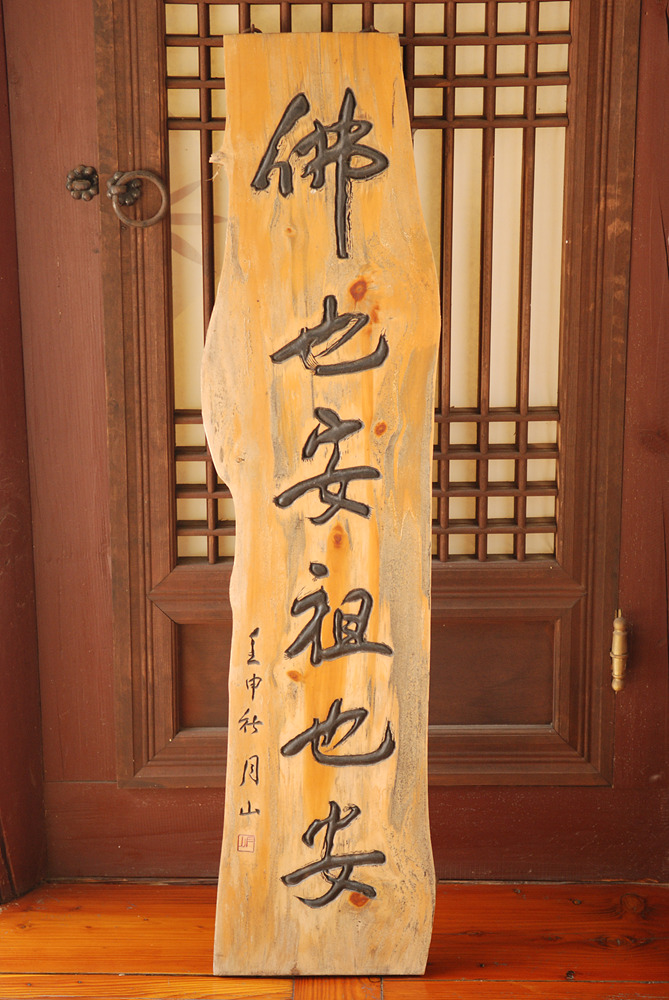 佛也安祖也安
壬申秋 月山